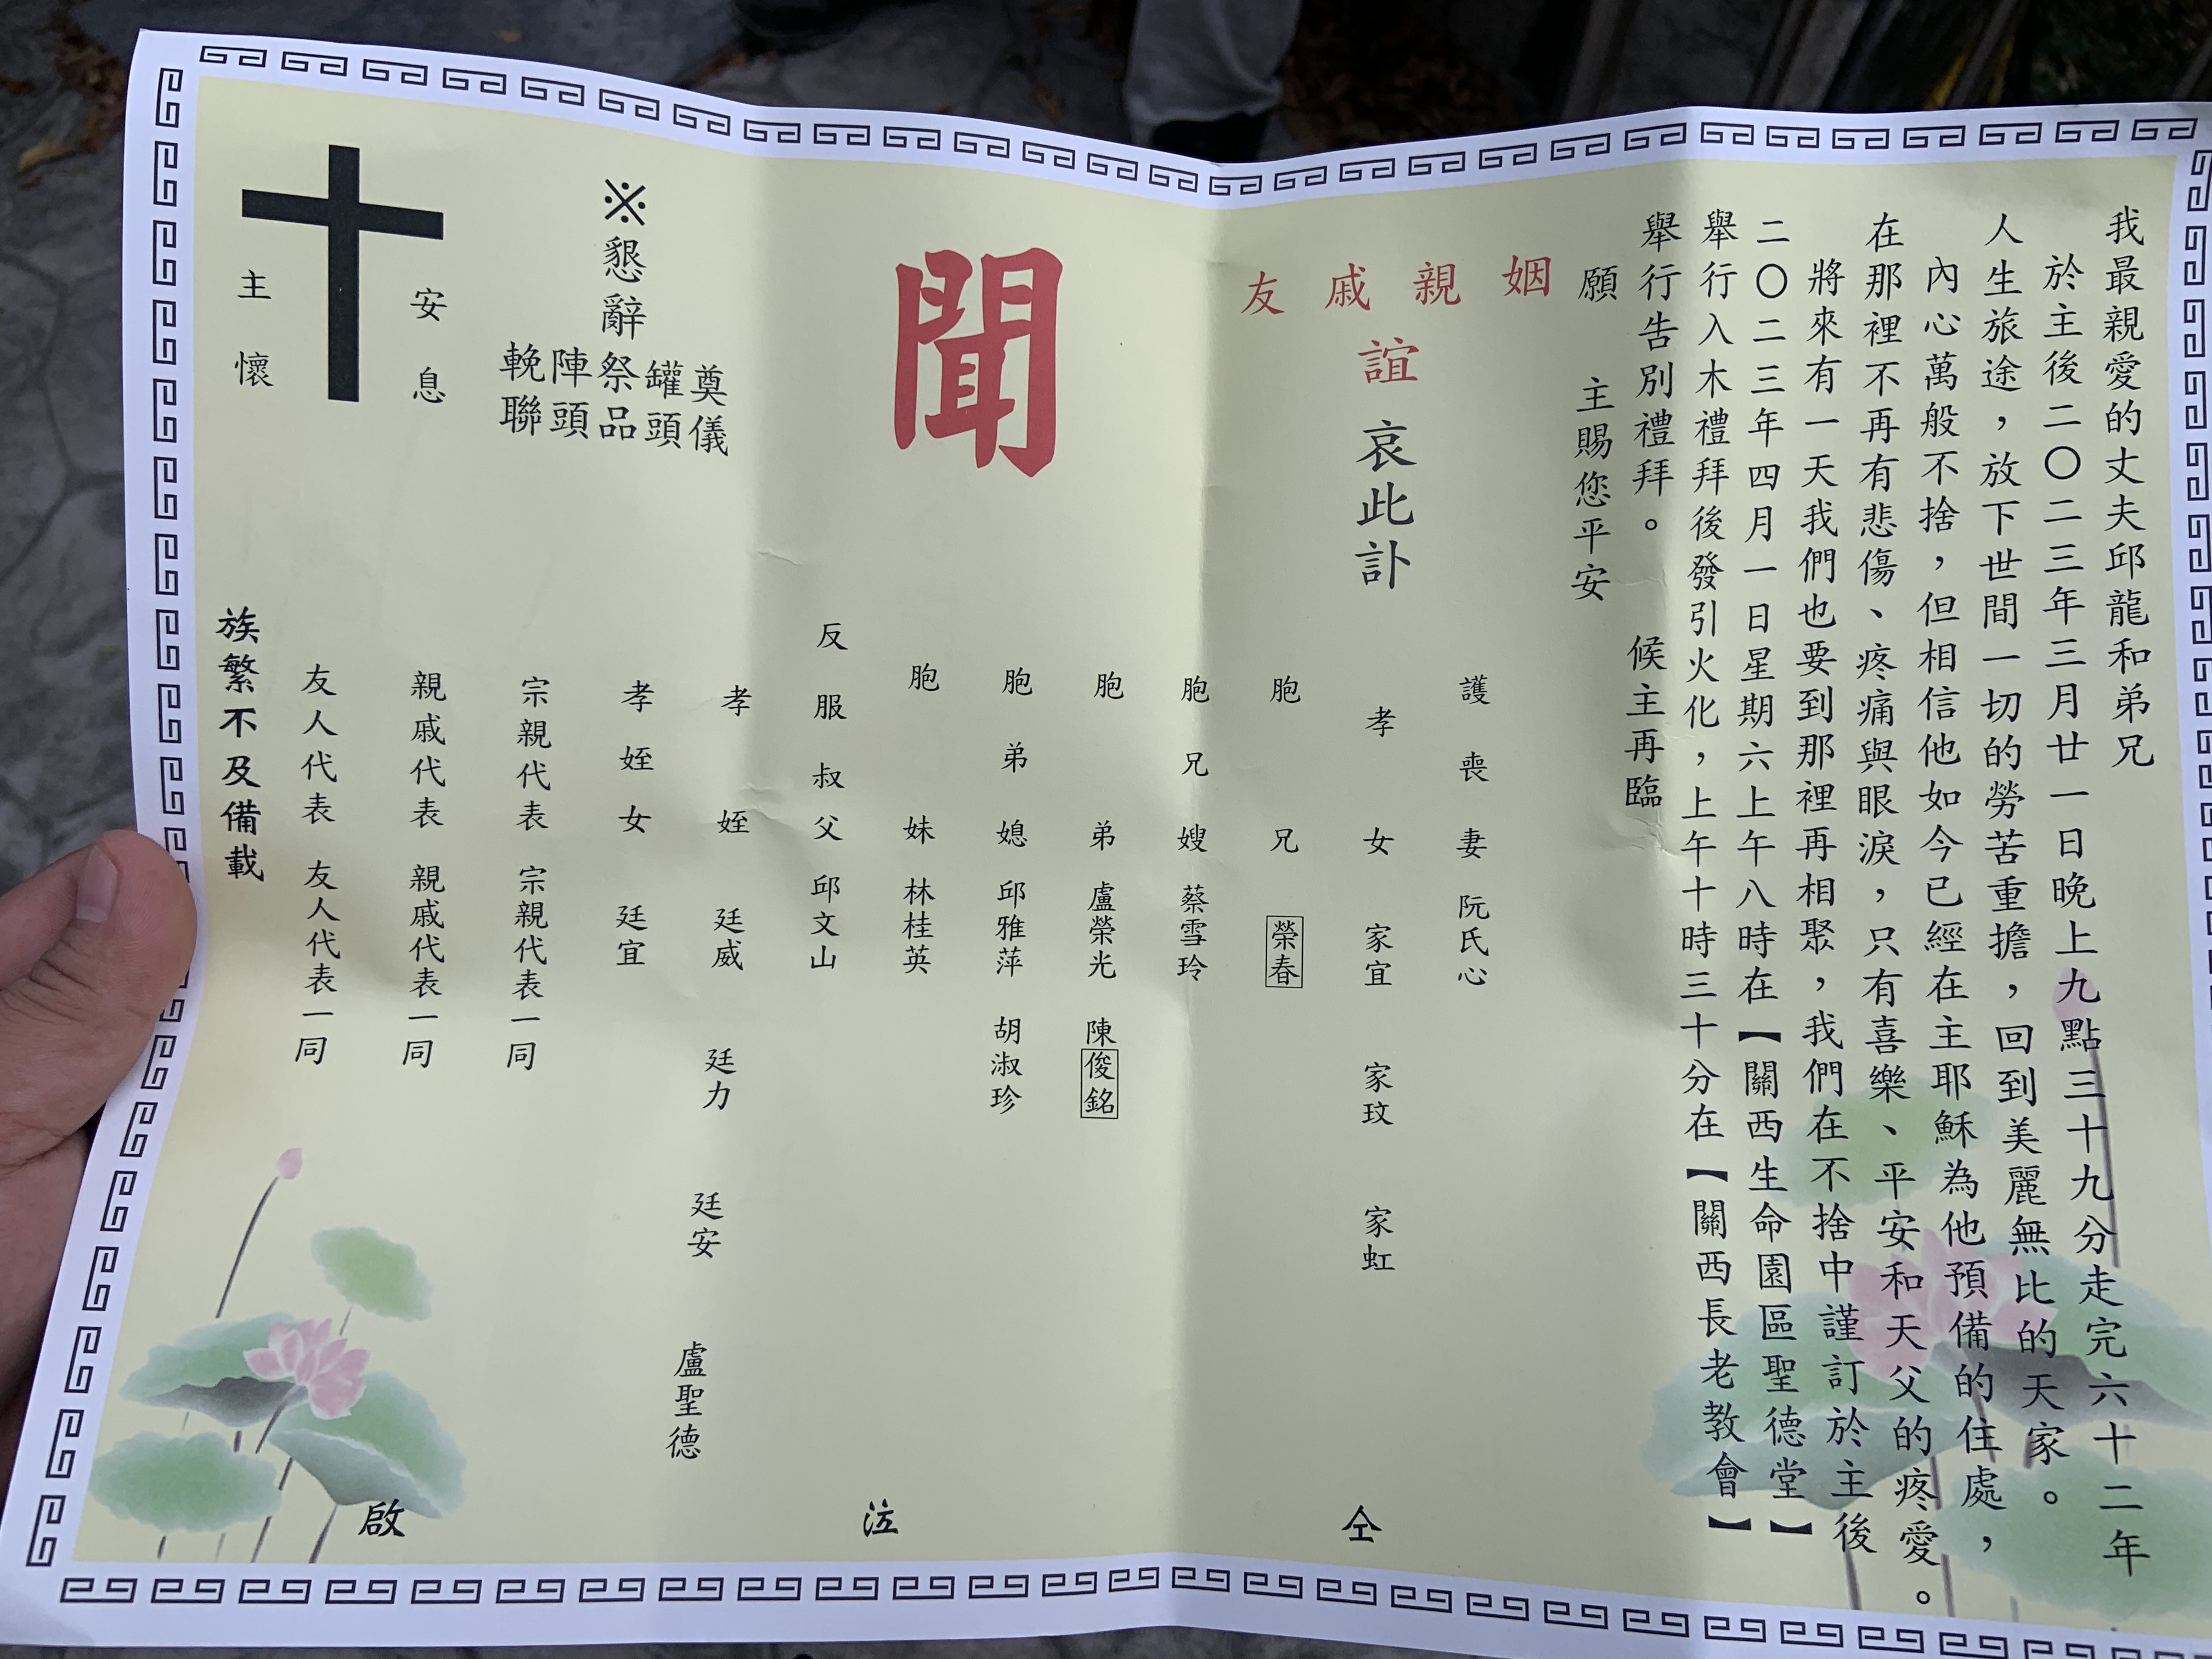 我最親愛的丈夫邱龍和弟兄
於主後二〇二三年三月廿一日晚上九點三十九分走完六十二年
人生旅途，放下世間一切的勞苦重擔，回到美麗無比的天家。
內心萬般不捨，但相信他如今已經在主耶穌為他預備的住處，
在那裡不再有悲傷、疼痛與眼淚，只有喜樂、平安和天父的疼愛。
將來有一天我們也要到那裡再相聚，我們在不捨中謹訂於主後
二〇二三年四月一日星期六上午八時在【關西生命園區聖德堂】
舉行入木禮拜後發引火化，上午十時三十分在【關西長老教會】
舉行告別禮拜。 候主再臨
願 主賜您平安
姻親戚友
誼 哀此訃
聞
護喪妻 阮氏心
孝女 家宜 家玟 家虹
胞兄 榮春
胞兄嫂 蔡雪玲
胞弟 盧榮光 陳俊銘
胞弟媳 邱雅萍 胡淑珍
胞妹 林桂英
反服叔父 邱文山
孝姪 廷威 廷力 廷安 盧聖德
孝姪女 廷宜
宗親代表 宗親代表一同
親戚代表 親戚代表一同
友人代表 友人代表一同
族繁不及備載
仝 泣 啟
※懇辭
奠儀
罐頭
祭品
陣頭
輓聯
安息
主懷